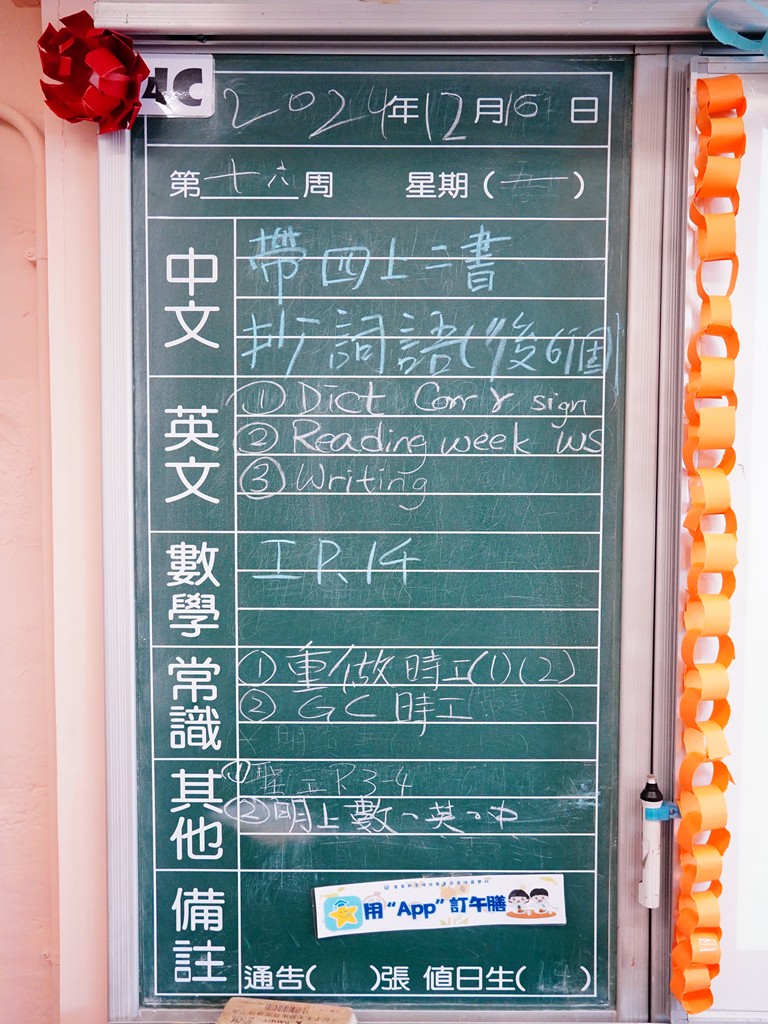 4C
2024年12月16日
第十六周 星期(一)
中文
帶四上二書
抄詞語(後6個)
英文
① Dict Corr & sign
② Reading week WS
③ Writing
數學
工 P.14
常識
① 重做時工(1)(2)
② GC 時工
其他
① 聖工 P.3-4
② 明上數、英、中
備註
用“App”訂午膳
通告( )張 值日生( )